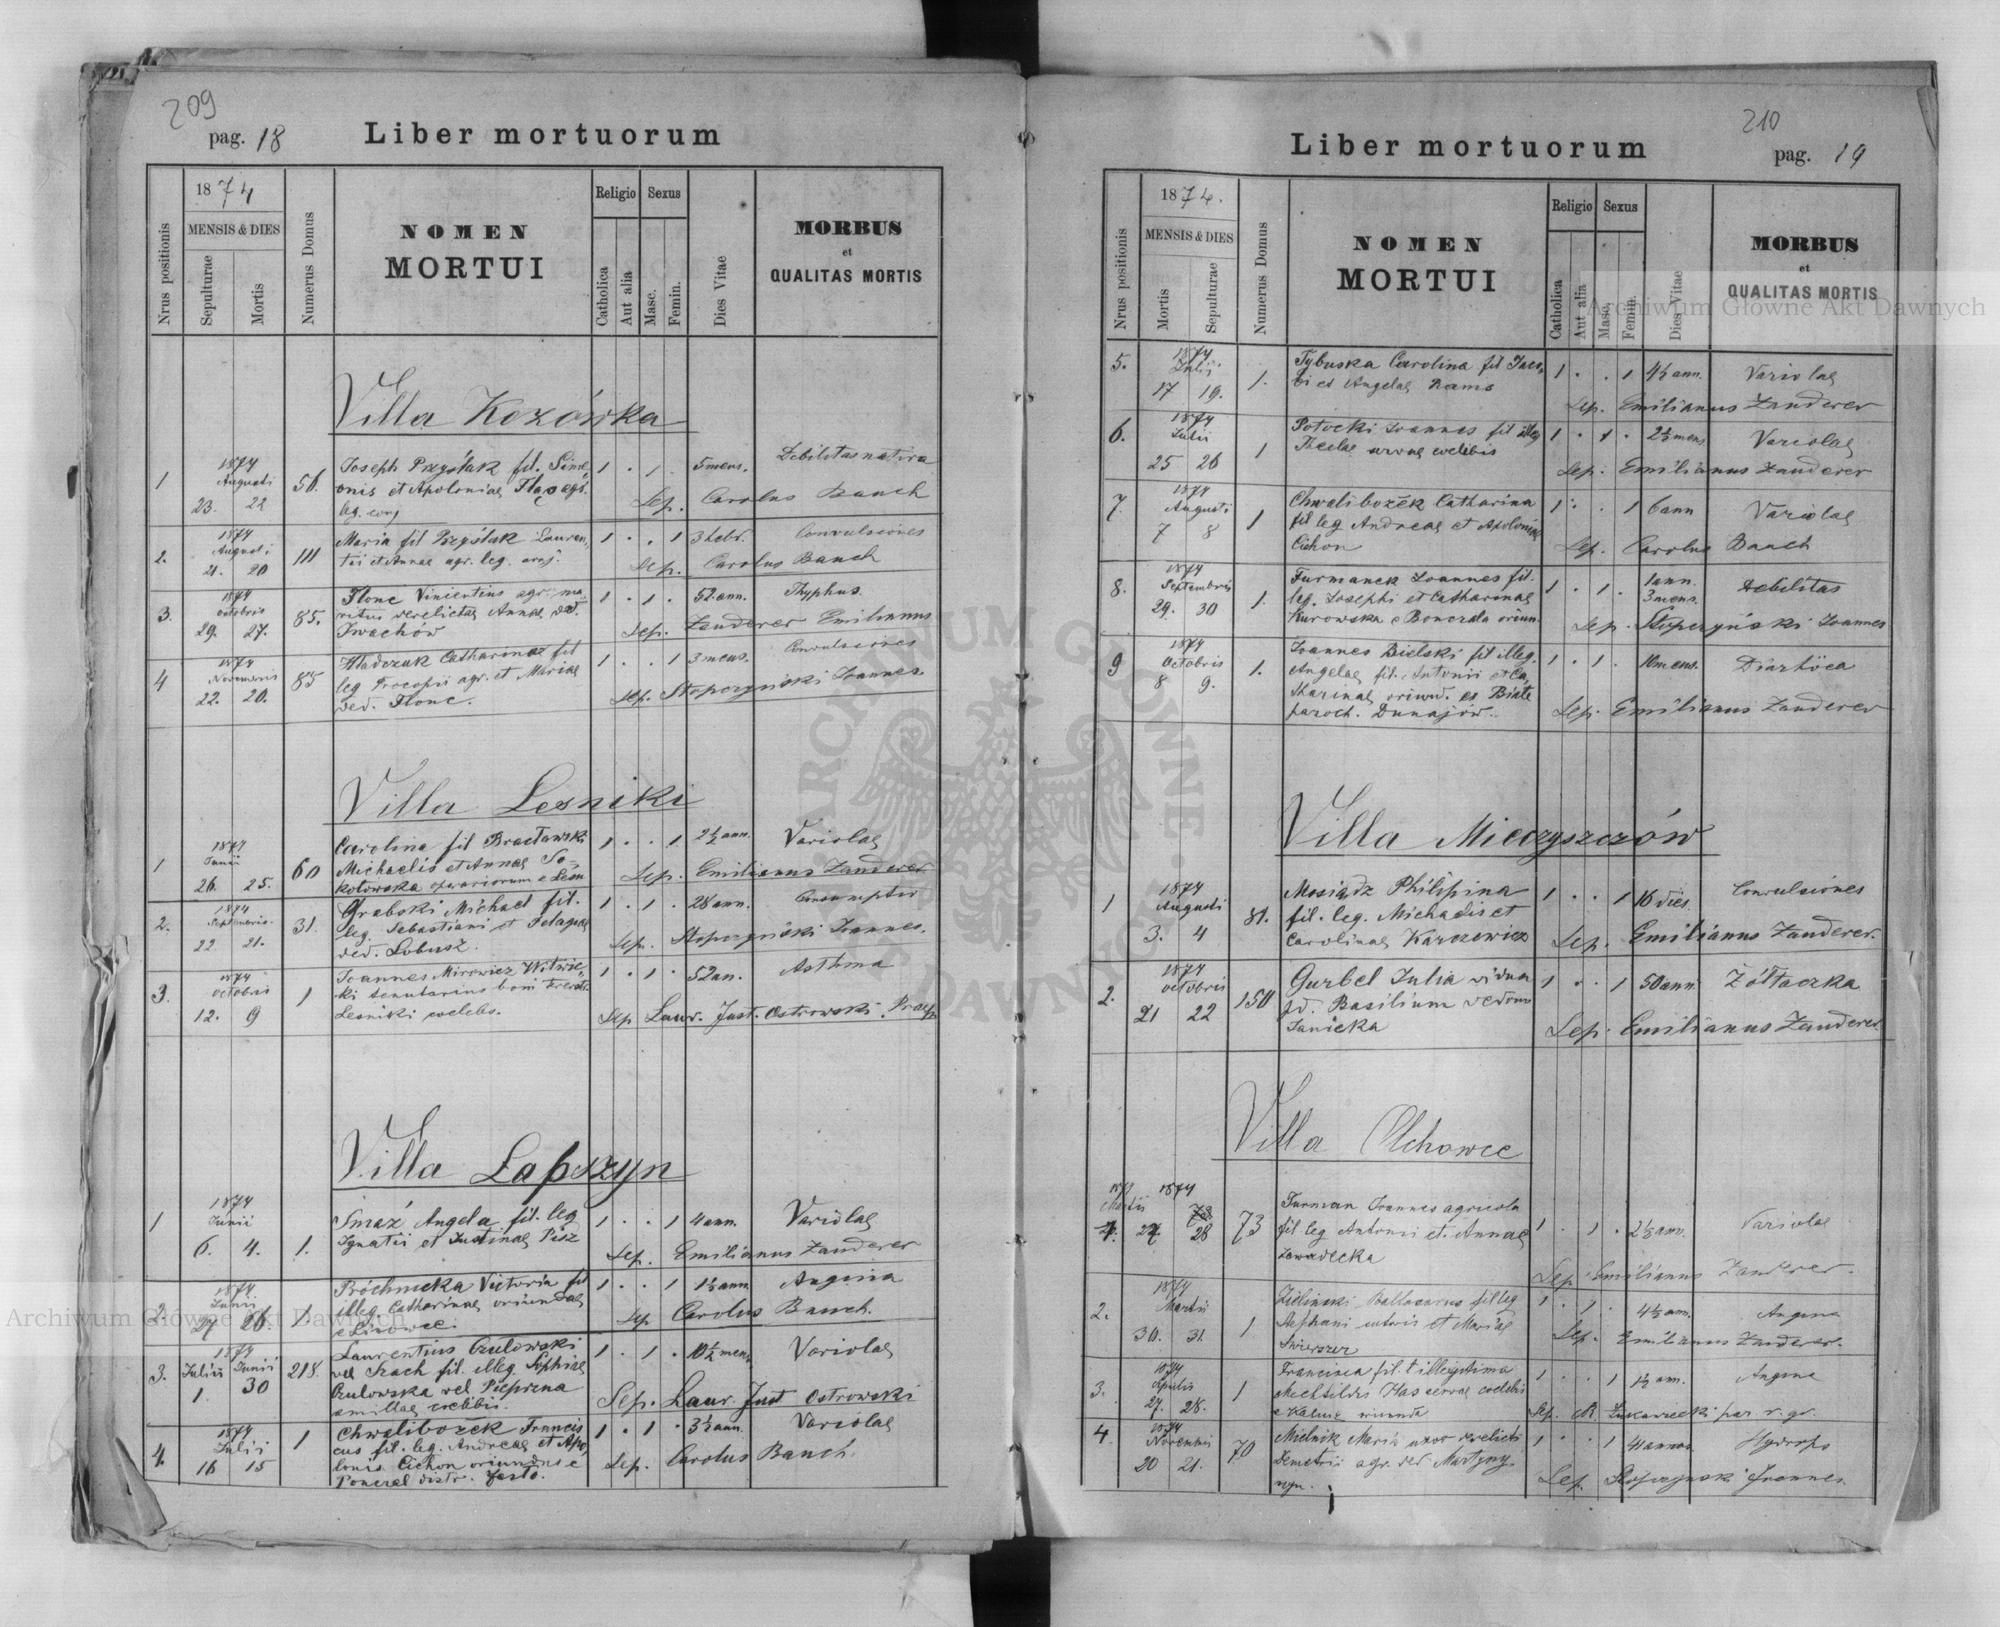 209
pag. 18
Liber mortuorum
Nrus positionis
1874
MENSIS & DIES
Sepulturae
Mortis
Numerus Domus
NOMEN
MORTUI
Religio
Sexus
Catholica
Aut alia
Masc.
Femin.
Dies Vitae
MORBUS
et
QUALITAS MORTIS
Villa Kozówka
1
1874
Augusti
23. 22
56.
Joseph Przyślak fil. Sime-
onis et Apoloniae Flaż agr.
leg. conj
1 . 1 .
5 mens.
Debilitas nativa
Sep. Carolus Bauch
2.
1874
Augusti
21. 20
111
Maria fil Przyślak Lauren-
tii et Annae agr. leg.
1 . . 1
3 hebr.
Convulsiones
Sep. Carolus Bauch
3
1874
Octobris
29. 27.
85.
Flonc Vincentius agr. ma-
ritus derelictae Annae ded.
Iwachów
1 . 1 .
52 ann.
Thyphus.
Sep. Zanderer Emilianus
4
1874
Novembris
22. 20.
85
Hladczuk Catharinae fil
leg Procopii agr. et Mariae
ded. Flonc.
1 . . 1
3 mens.
Convulsiones
Sep. Stopczyński Joannes
Villa Lesniki
1
1874
Junii
26. 25.
60
Carolina fil Bracławski
Michaelis et Annae So-
kołowska operariorum e Lesn
1 . . 1
2½ ann.
Variolae
Sep. Emilianus Zanderer
2.
1874
Septembris
22 21.
31.
Grabski Michael fil.
leg. Sebastiani et Pelagiae
ded. Lobusz.
1 . 1 .
28 ann.
Consumptio
Sep. Stopczyński Joannes.
3.
1874
Octobris
12. 9
1
Joannes Mirowicz Witwic-
ki tenutarius boni
Lesniki coelebs.
1 . 1 .
52 an.
Asthma
Sep Laur. Just. Ostrowski Praep
Villa Łapszyn
1
1874
Junii
6. 4.
1.
Smaź Angela fil. leg
Ignatii et Justinae Pisz
1 . . 1
4 ann.
Variolae
Sep. Emilianus Zanderer
2.
1874
Junii
27 26.
1
Próchnicka Victoria fil
illeg. Catharinae oriundae
e Linowce.
1 . . 1
1½ ann.
Angina
Sep Carolus Bauch.
3.
1874
Julii Junii
1. 30
218.
Laurentius Czulowski
vel Szach fil. illeg. Sophiae
Czulowska vel Pieprzna
famillae coelibis.
1 . 1 .
10½ mens
Variolae
Sep. Laur. Just Ostrowski
4.
1874
Julii
16 15
1
Chwalibożek Francis
cus fil. leg. Andreae et Apo
lonia Cichon oriundus e
Poneral distr. Jasło.
1 . 1 .
3½ ann.
Variolae
Sep. Carolus Bauch
210
Liber mortuorum
pag. 19
Nrus positionis
1874.
MENSIS & DIES
Mortis
Sepulturae
Numerus Domus
NOMEN
MORTUI
Religio
Sexus
Catholica
Aut alia
Masc.
Femin.
Dies Vitae
MORBUS
et
QUALITAS MORTIS
Archiwum Główne Akt Dawnych
5.
1874
Julii
17 19.
1.
Tybuska Carolina fil Jaco-
bi et Angelae Rams
1 . . 1
4½ ann.
Variolae
Sep. Emilianus Zanderer
6.
1874
Julii
25 26
1
Potocki Joannes fil illeg
Theclae servae coelibis
1 . 1 .
2½ mens.
Variolae
Sep. Emilianus Zanderer
7.
1874
Augusti
7 8
1
Chwalibożek Catharina
fil leg Andreae et Apoloniae
Cichon
1 . . 1
6 ann
Variolae
Sep. Carolus Bauch
8.
1874
Septembris
29. 30
1.
Furmanek Joannes fil.
leg. Josephi et Catharinae
Kurowska e Bonczala oriun.
1 . 1 .
1 ann.
3 mens.
Debilitas
Sep. Stopczyński Joannes
9
1874
Octobris
8 9.
1.
Joannes Bielski fil illeg.
Angelae fil. Antonii et Ca-
tharinae oriund. ex Białe
paroch. Dunajów.
1 . 1 .
10 mens.
Diarhöea
Sep. Emilianus Zanderer
Villa Mieczyszczów
1
1874
Augusti
3. 4
81.
Mosiądz Philipina
fil. leg. Michaelis et
Carolinae Karczewicz
1 . . 1
16 dies.
Convulsiones
Sep. Emilianus Zanderer.
2.
1874
Octobris
21 22
150
Gurbel Julia vidua
pd. Basilium de domo
Janicka
1 . . 1
50 ann
Żółtaczka
Sep. Emilianus Zanderer
Villa Olchowce
1874
Martii
1. 27 28
73
Furman Joannes agricola
fil leg Antonii et Annae
Zawadecka
1 . 1 .
2½ ann.
Variolae
Sep. Emilianus Zanderer.
2.
1874
Martii
30. 31.
1
Zielinski Baltasarus fil leg
Stephani et Mariae
Świerszcz
1 . 1 .
4½ ann.
Angina
Sep. Emilianus Zanderer.
3.
1874
Aprilis
27. 28.
1
Francisca fil. illegitima
Mechtildis Has servae coelebis
e Kalusz oriunda
1 . . 1
1½ ann.
Angina
Sep. Łukawiecki par r. gr.
4
1874
Novembris
20 21.
70
Mielnik Maria uxor derelicti
Demetrii agr. ded Martyny-
szyn.
1 . . 1
41 annos
Hydrops
Sep. Stopczynski Joannes.
ARCHIWUM GŁÓWNE AKT DAWNYCH
Archiwum Główne Akt Dawnych